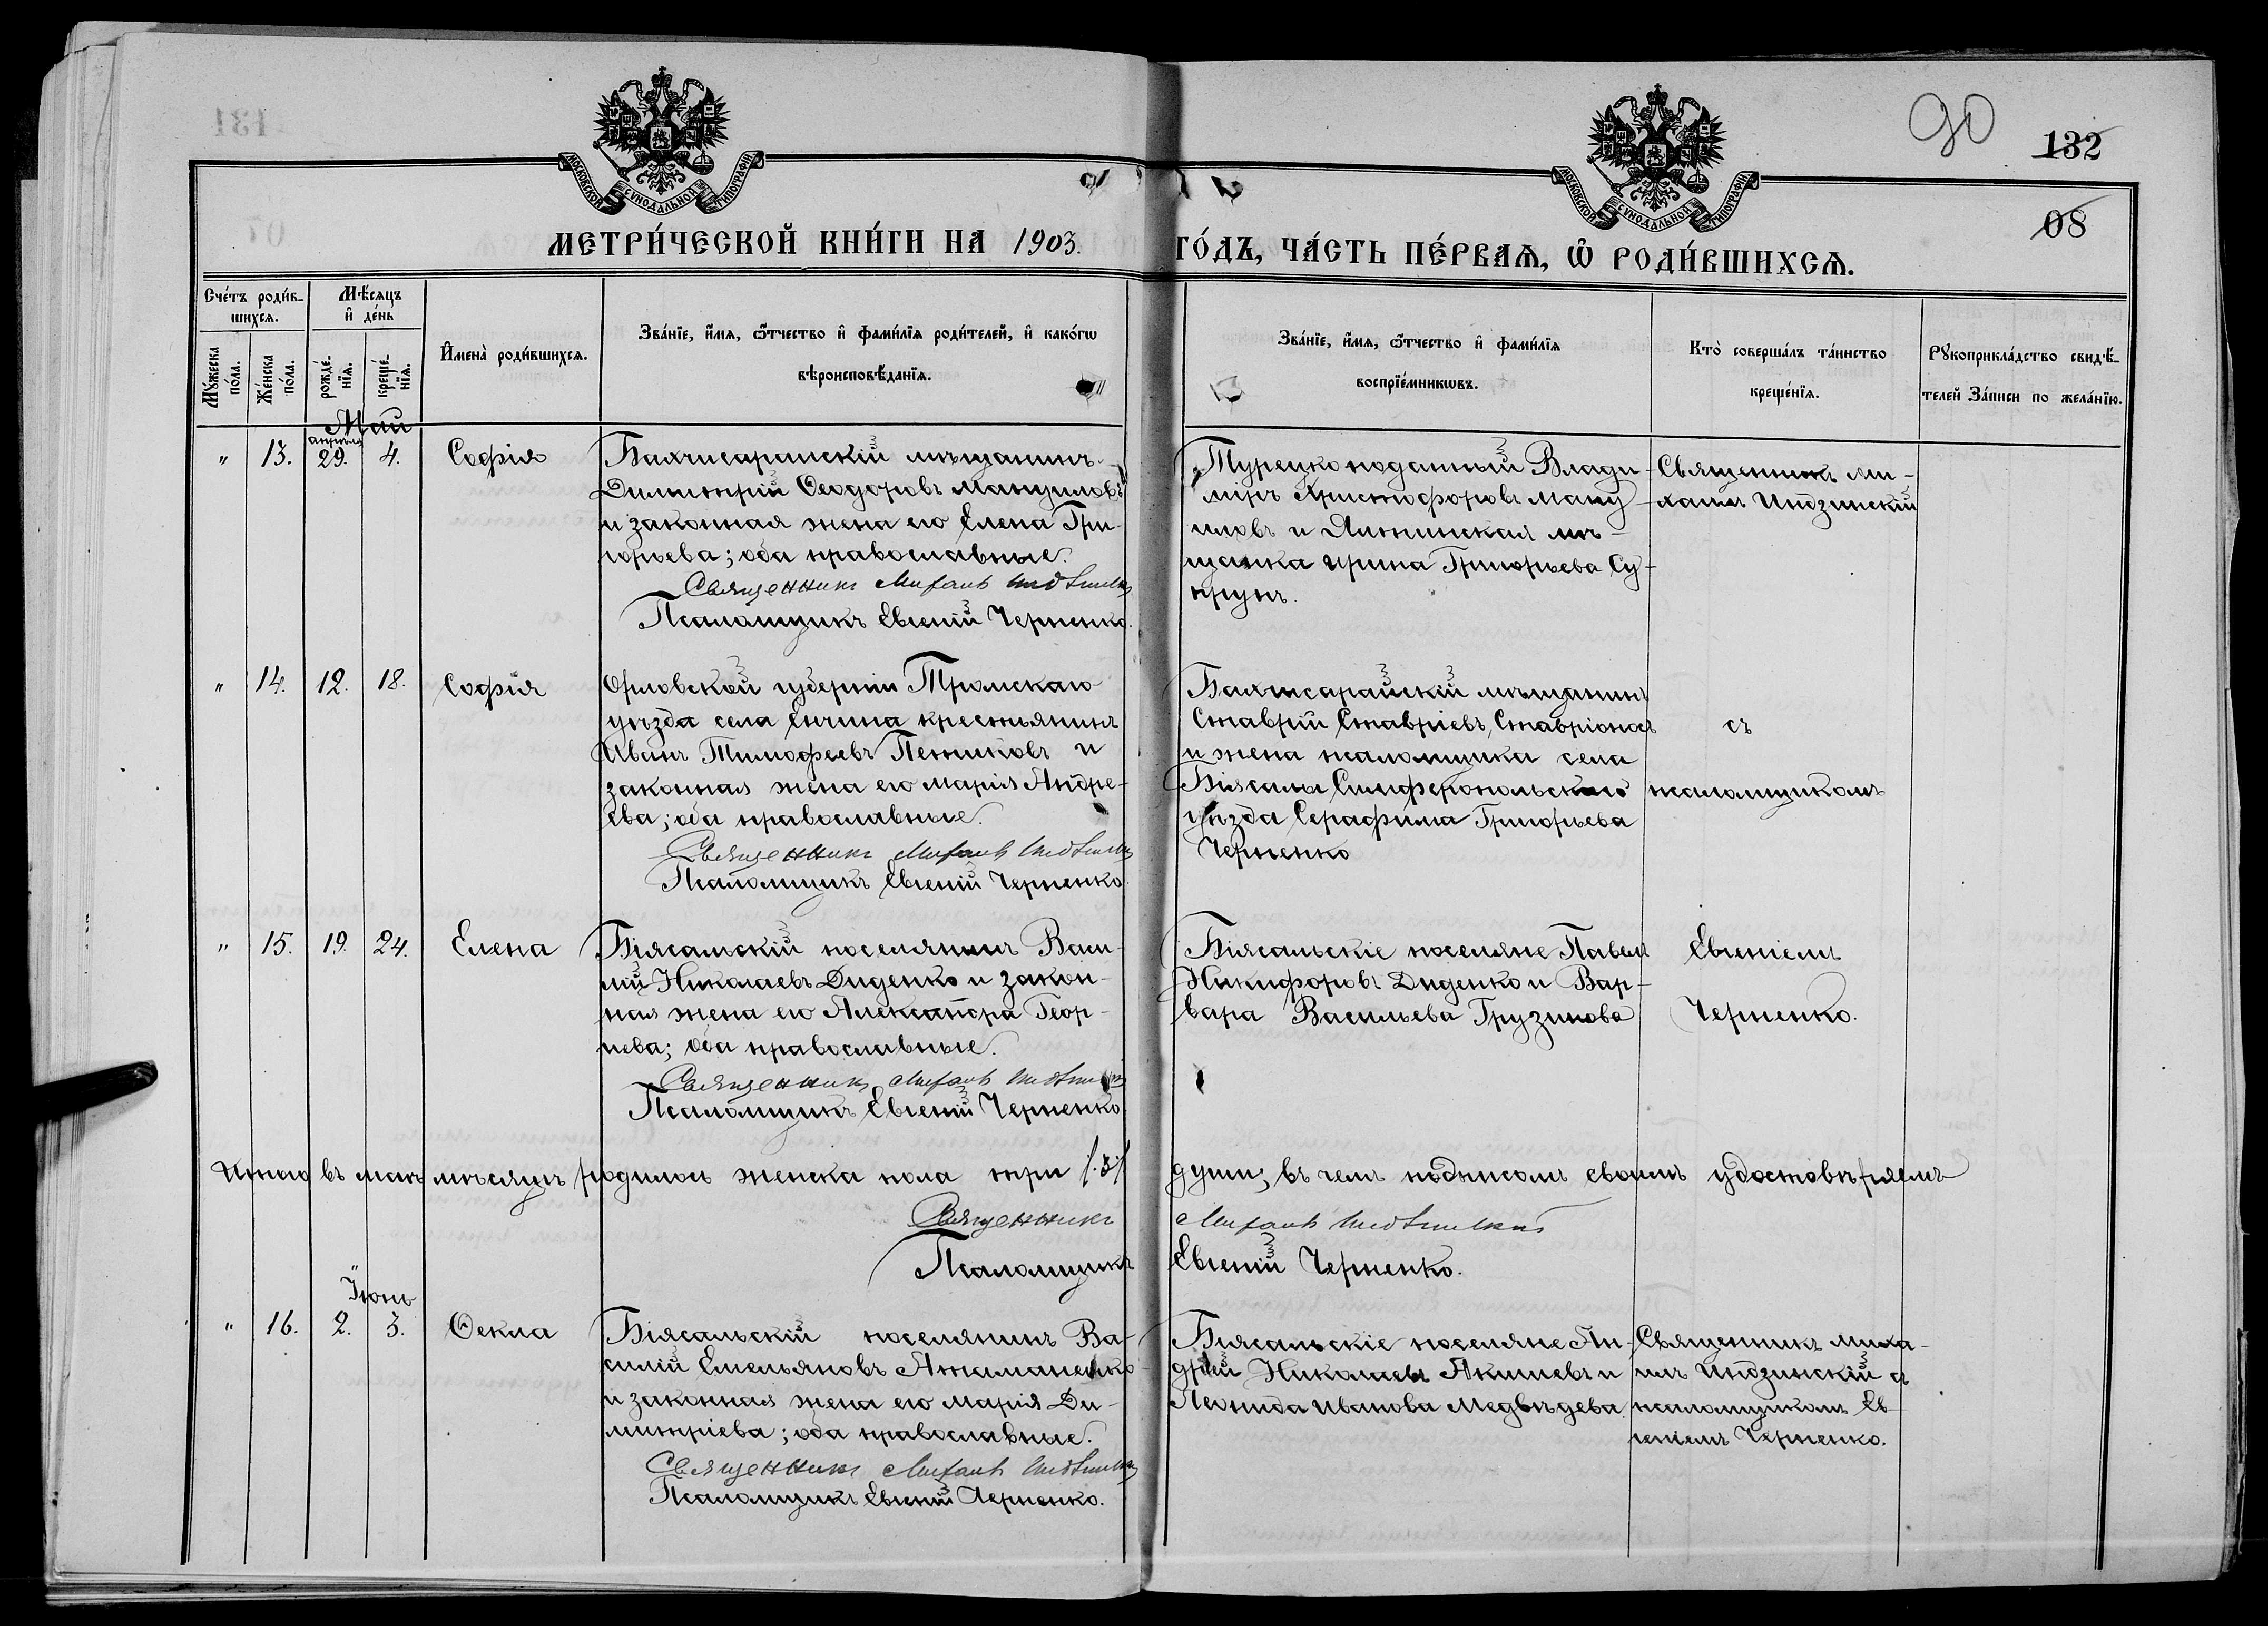 90
132
08
МОСКОВСКОЙ СѴНОДАЛЬНОЙ ТИПОГРАФІИ
МОСКОВСКОЙ СѴНОДАЛЬНОЙ ТИПОГРАФІИ
МЕТРИ́ЧЕСКОЙ КНИ́ГИ НА 1903. ГО́ДЪ, ЧА́СТЬ ПЕ́РВАѦ, Ѡ҆ РОДИ́ВШИХСѦ.
Сче́тъ роди́в-
шихсѧ.
Мꙋ́жеска по́ла.
Же́нска по́ла.
Мѣ́сѧцъ
и҆ де́нь
рожде́-
нїѧ.
креще́-
нїѧ.
И҆мена̀ роди́вшихсѧ.
Зва́нїе, и҆́мѧ, ѻ҆́тчество и҆ фами́лїѧ роди́телей, и҆ како́гѡ
вѣроисповѣ́данїѧ.
Зва́нїе, и҆́мѧ, ѻ҆́тчество и҆ фами́лїѧ
воспрїе́мникѡвъ.
Кто̀ соверша́лъ та́инство
креще́нїѧ.
Рꙋкоприкла́дство свидѣ́-
телей За́писи по жела́нїю.
Май
апрѣля
" 13. 29. 4. Софія
Бахчисарайскій мѣщанинъ
Димитрій Ѳеодоровъ Манциловъ
и законная жена его Елена Гри-
горьева; оба православные.
Священникъ Михаилъ Индзинскій
Псаломщикъ Евгеній Черненко.
Турецко поданный Влади-
міръ Христофоровъ Ману-
иловъ и Ялтинская мѣ-
щанка Ирина Григорьева Су-
прунъ.
Священникъ Ми-
хаилъ Индзинскій
" 14. 12. 18. Софія
Орловской губерніи Кромскаго
уѣзда села крестьянинъ
Иванъ Тимофеевъ Пенчковъ и
законная жена его Марія Андре-
ева; оба православные.
Священникъ Михаилъ Индзинскій
Псаломщикъ Евгеній Черненко.
Бахчисарайскій мѣщанинъ
Ставрій Ставріевъ Ставріоновъ
и жена псаломщика села
Біясалы Симферопольскаго
уѣзда Серафима Григорьева
Черненко
съ
псаломщикомъ
" 15. 19. 24. Елена
Біясальскій поселянинъ Васи-
лій Николаевъ Диденко и закон-
ная жена его Александра Геор-
гіева; оба православные.
Священникъ Михаилъ Индзинскій
Псаломщикъ Евгеній Черненко
Біясальскіе поселяне Павелъ
Никифоровъ Диденко и Вар-
вара Васильева Грузинова
Евгеніемъ
Черненко.
Итого въ маѣ мѣсяцѣ родилось женска пола три /.3./ души, въ чемъ подписомъ своимъ удостовѣряемъ
Священникъ Михаилъ Индзинскій
Псаломщикъ Евгеній Черненко.
Іюнь
" 16. 2. 3. Ѳекла
Біясальскій поселянинъ Ва-
силій Емельяновъ Атаманенко
и законная жена его Марія Ди-
митріева; оба православные.
Священникъ Михаилъ Индзинскій
Псаломщикъ Евгеній Черненко.
Біясальскіе поселяне Ан-
дрей Николаевъ Акишевъ и
Леонида Иванова Медвѣдева.
Священникъ Миха-
илъ Индзинскій съ
псаломщикомъ Ев-
геніемъ Черненко.